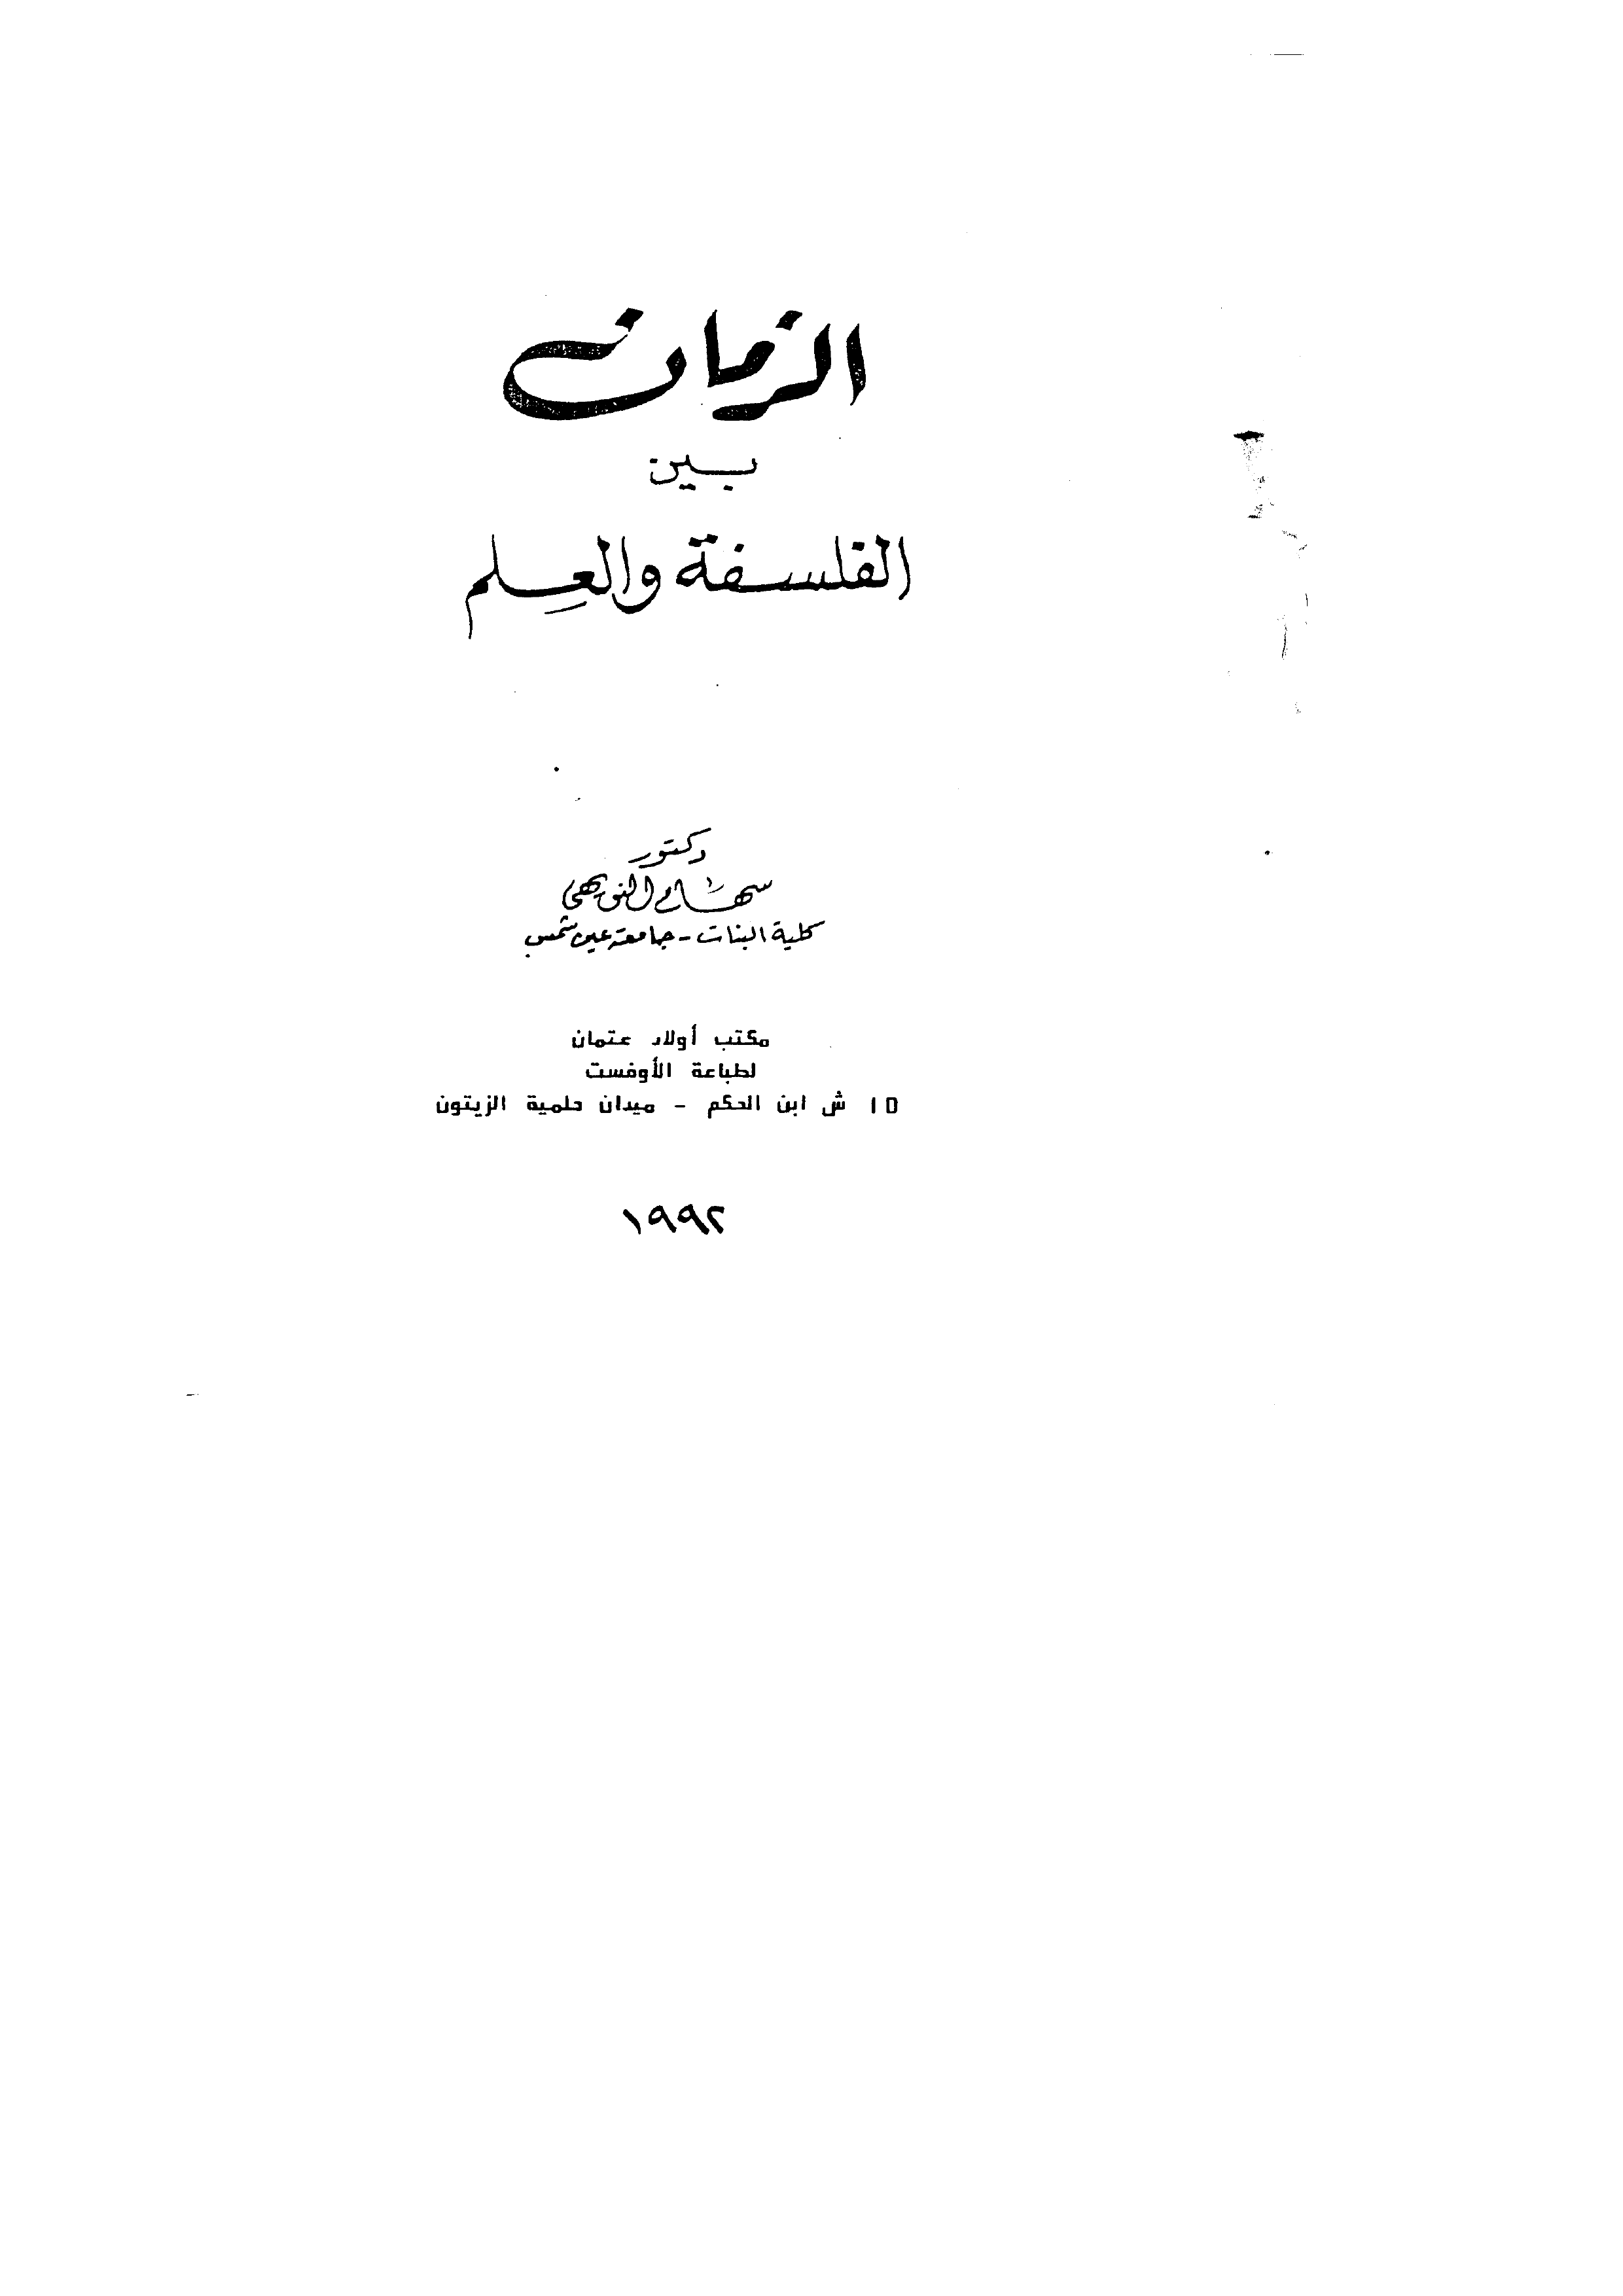 الزمان
بين
الفلسفة والعلم
دكتور
سهام النويهى
كلية البنات - جامعة عين شمس
مكتب أولاد عثمان
لطباعة الأوفست
١٥ ش ابن الحكم - ميدان حلمية الزيتون
١٩٩٢